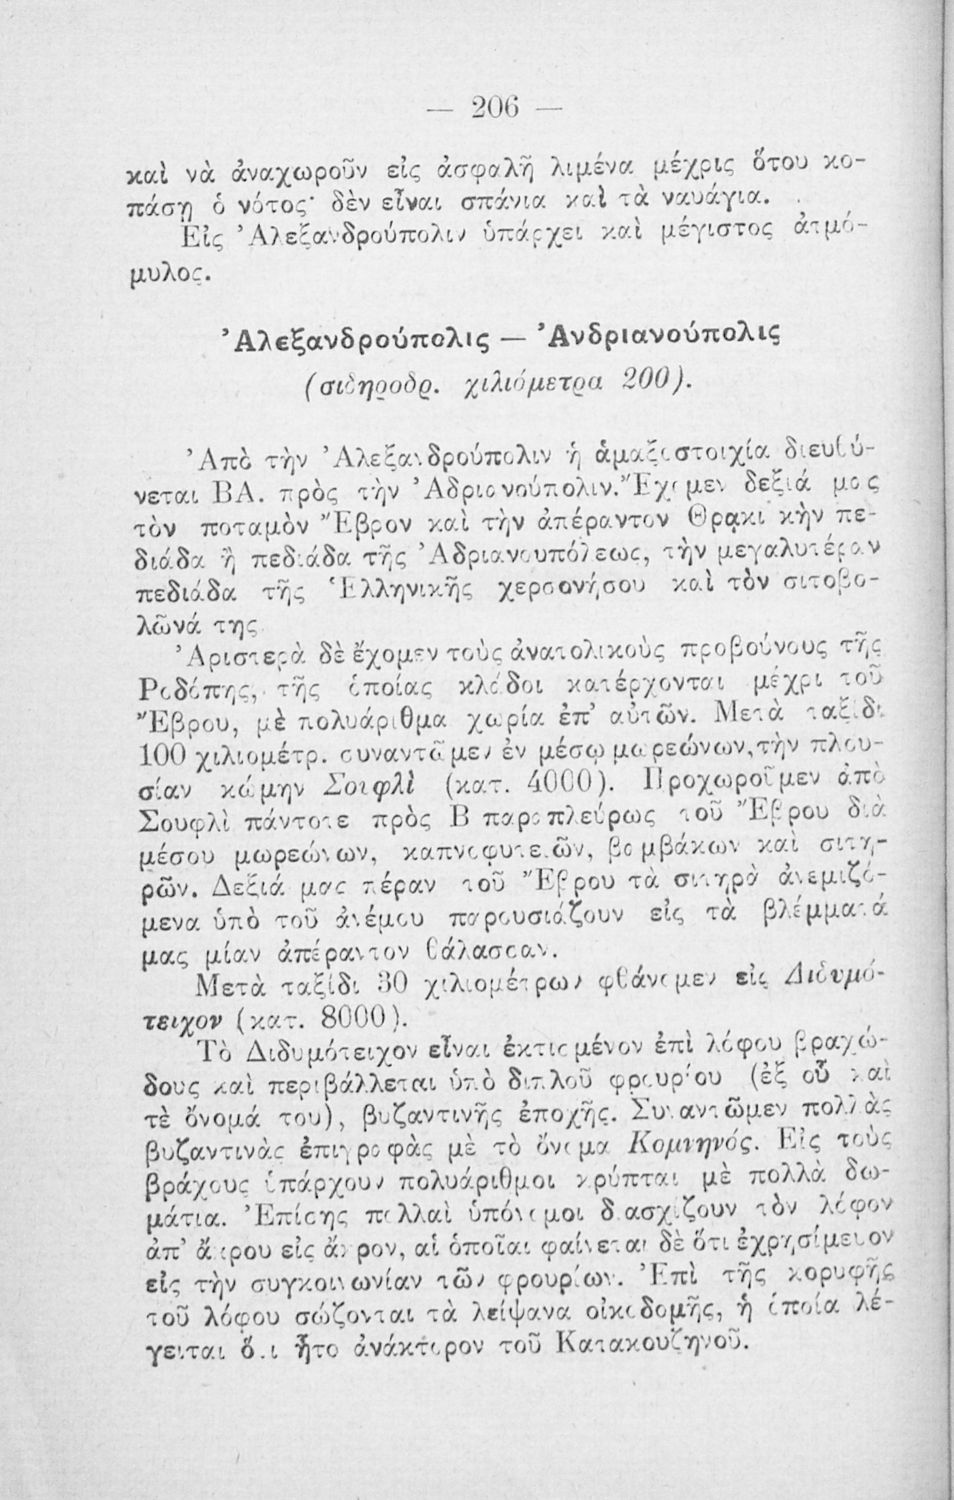 — 206 —
καὶ νὰ ἀναχωροῦν εἰς ἀσφαλῆ λιμένα μέχρις ὅτου κο-
πάσῃ ὁ νότος· δὲν εἶναι σπάνια καὶ τὰ ναυάγια.
Εἰς Ἀλεξανδρούπολιν ὑπάρχει καὶ μέγιστος ἀτμό-
μυλος.
Ἀλεξανδρούπολις — Ἀνδριανούπολις
(σιδηροδρ. χιλιόμετρα 200).
Ἀπὸ τὴν Ἀλεξανδρούπολιν ἡ ἁμαξοστοιχία διευθύ-
νεται ΒΑ. πρὸς τὴν Ἀδριανούπολιν. Ἔχομεν δεξιά μας
τὸν ποταμὸν Ἔβρον καὶ τὴν ἀπέραντον Θρακικὴν πε-
διάδα ἢ πεδιάδα τῆς Ἀδριανουπόλεως, τὴν μεγαλυτέραν
πεδιάδα τῆς Ἑλληνικῆς χερσονήσου καὶ τὸν σιτοβο-
λῶνά της
Ἀριστερὰ δὲ ἔχομεν τοὺς ἀνατολικοὺς προβούνους τῆς
Ροδόπης, τῆς ὁποίας κλάδοι κατέρχονται μέχρι τοῦ
Ἔβρου, μὲ πολυάριθμα χωρία ἐπ’ αὐτῶν. Μετὰ ταξίδι
100 χιλιομέτρ. συναντῶμεν ἐν μέσῳ μωρεώνων, τὴν πλου-
σίαν κώμην Σουφλὶ (κατ. 4000). Προχωροῦμεν ἀπὸ
Σουφλὶ πάντοτε πρὸς Β παραπλεύρως τοῦ Ἔβρου διὰ
μέσου μωρεώνων, καπνοφυτειῶν, βαμβάκων καὶ σιτη-
ρῶν. Δεξιά μας πέραν τοῦ Ἔβρου τὰ σιτηρὰ ἀνεμιζό-
μενα ὑπὸ τοῦ ἀνέμου παρουσιάζουν εἰς τὰ βλέμματά
μας μίαν ἀπέραντον θάλασσαν.
Μετὰ ταξίδι 30 χιλιομέτρων φθάνομεν εἰς Διδυμό-
τειχον (κατ. 8000).
Τὸ Διδυμότειχον εἶναι ἐκτισμένον ἐπὶ λόφου βραχώ-
δους καὶ περιβάλλεται ὑπὸ διπλοῦ φρουρίου (ἐξ οὗ καὶ
τὸ ὄνομά του), βυζαντινῆς ἐποχῆς. Συναντῶμεν πολλὰς
βυζαντινὰς ἐπιγραφὰς μὲ τὸ ὄνομα Κομνηνός. Εἰς τοὺς
βράχους ὑπάρχουν πολυάριθμοι κρύπται μὲ πολλὰ δω-
μάτια. Ἐπίσης πολλαὶ ὑπόνομοι διασχίζουν τὸν λόφον
ἀπ’ ἄκρου εἰς ἄκρον, αἱ ὁποῖαι φαίνεται δὲ ὅτι ἐχρησίμευον
εἰς τὴν συγκοινωνίαν τῶν φρουρίων. Ἐπὶ τῆς κορυφῆς
τοῦ λόφου σώζονται τὰ λείψανα οἰκοδομῆς, ἡ ὁποία λέ-
γεται ὅτι ἦτο ἀνάκτορον τοῦ Κατακουζηνοῦ.